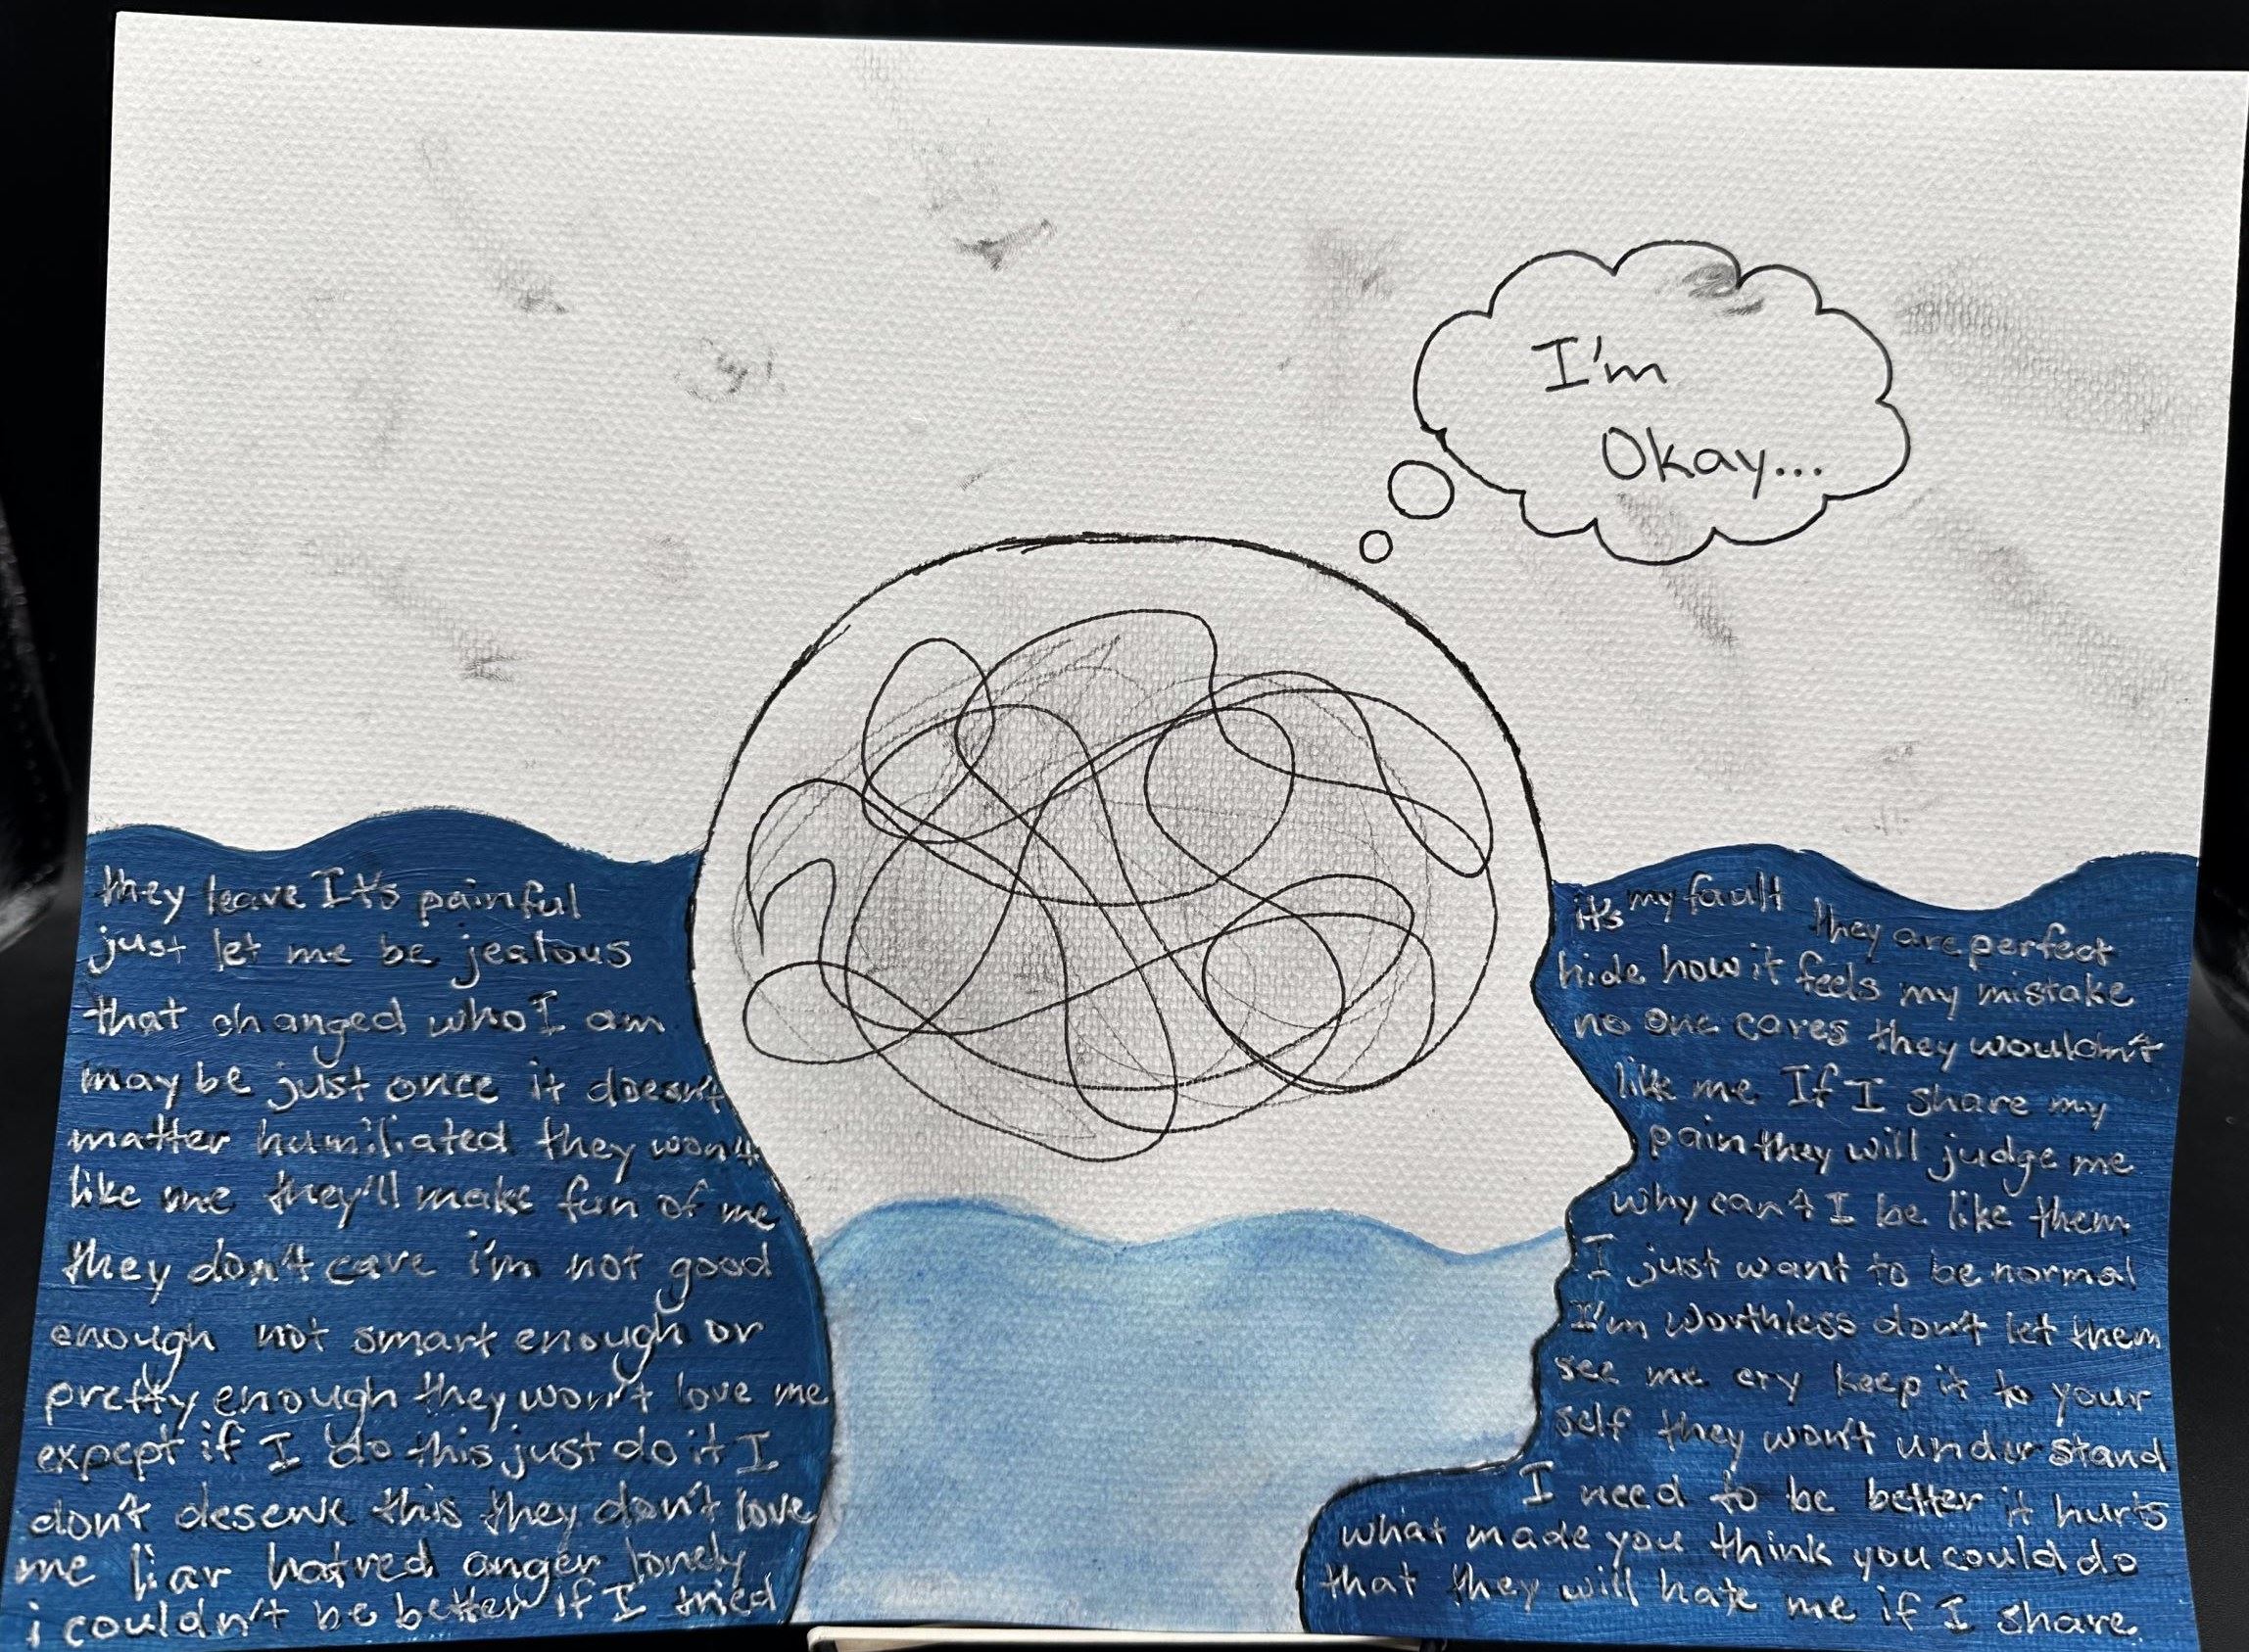 I'm
Okay...
they leave It's painful
just let me be jealous
that changed who I am
may be just once it doesn't
matter humiliated they won't
like me they'll make fun of me
they don't care i'm not good
enough not smart enough or
pretty enough they won't love me
expept if I do this just do it I
don't deserve this they don't love
me liar hatred anger lonely
i couldn't be better if I tried
it's my fault they are perfect
hide how it feels my mistake
no one cares they wouldn't
like me If I share my
pain they will judge me
why can't I be like them
I just want to be normal
I'm worthless don't let them
see me cry keep it to your
self they won't under stand
I need to be better it hurts
what made you think you could do
that they will hate me if I share